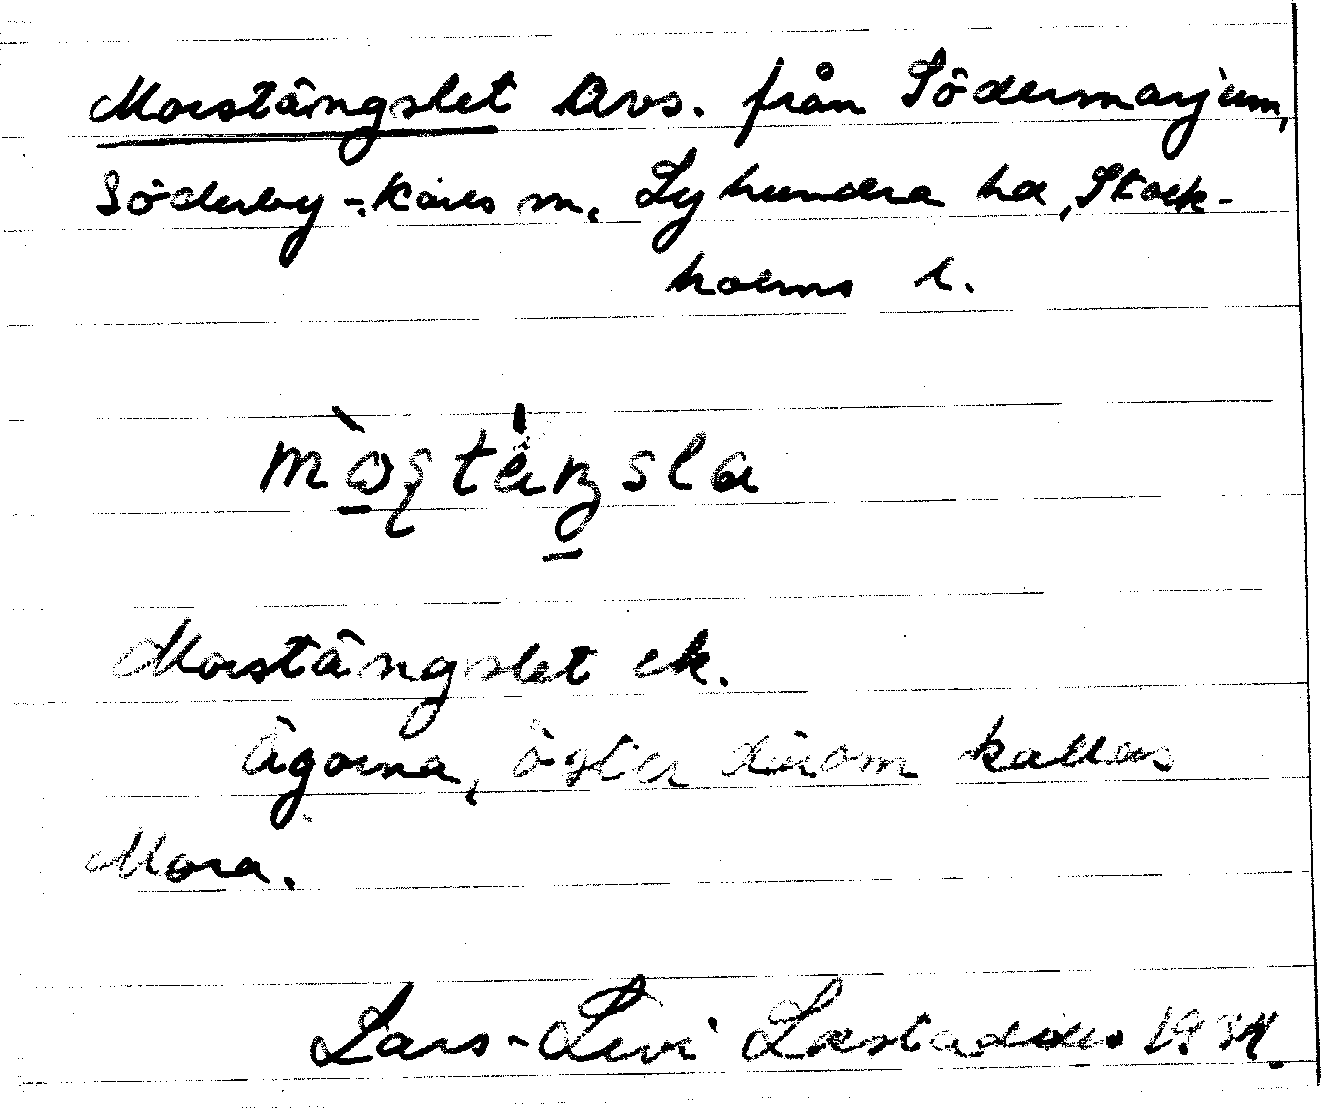 Morstängslet Avs. från Södermarjum,
Söderby-Karls sn, Lyhundra hd, Stock-
holms l.
mo̠ʂtäŋsla
Morstängslet ek.
Ägorna, öster därom kallas
Mora.
Lars-Levi Læstadius 1934.